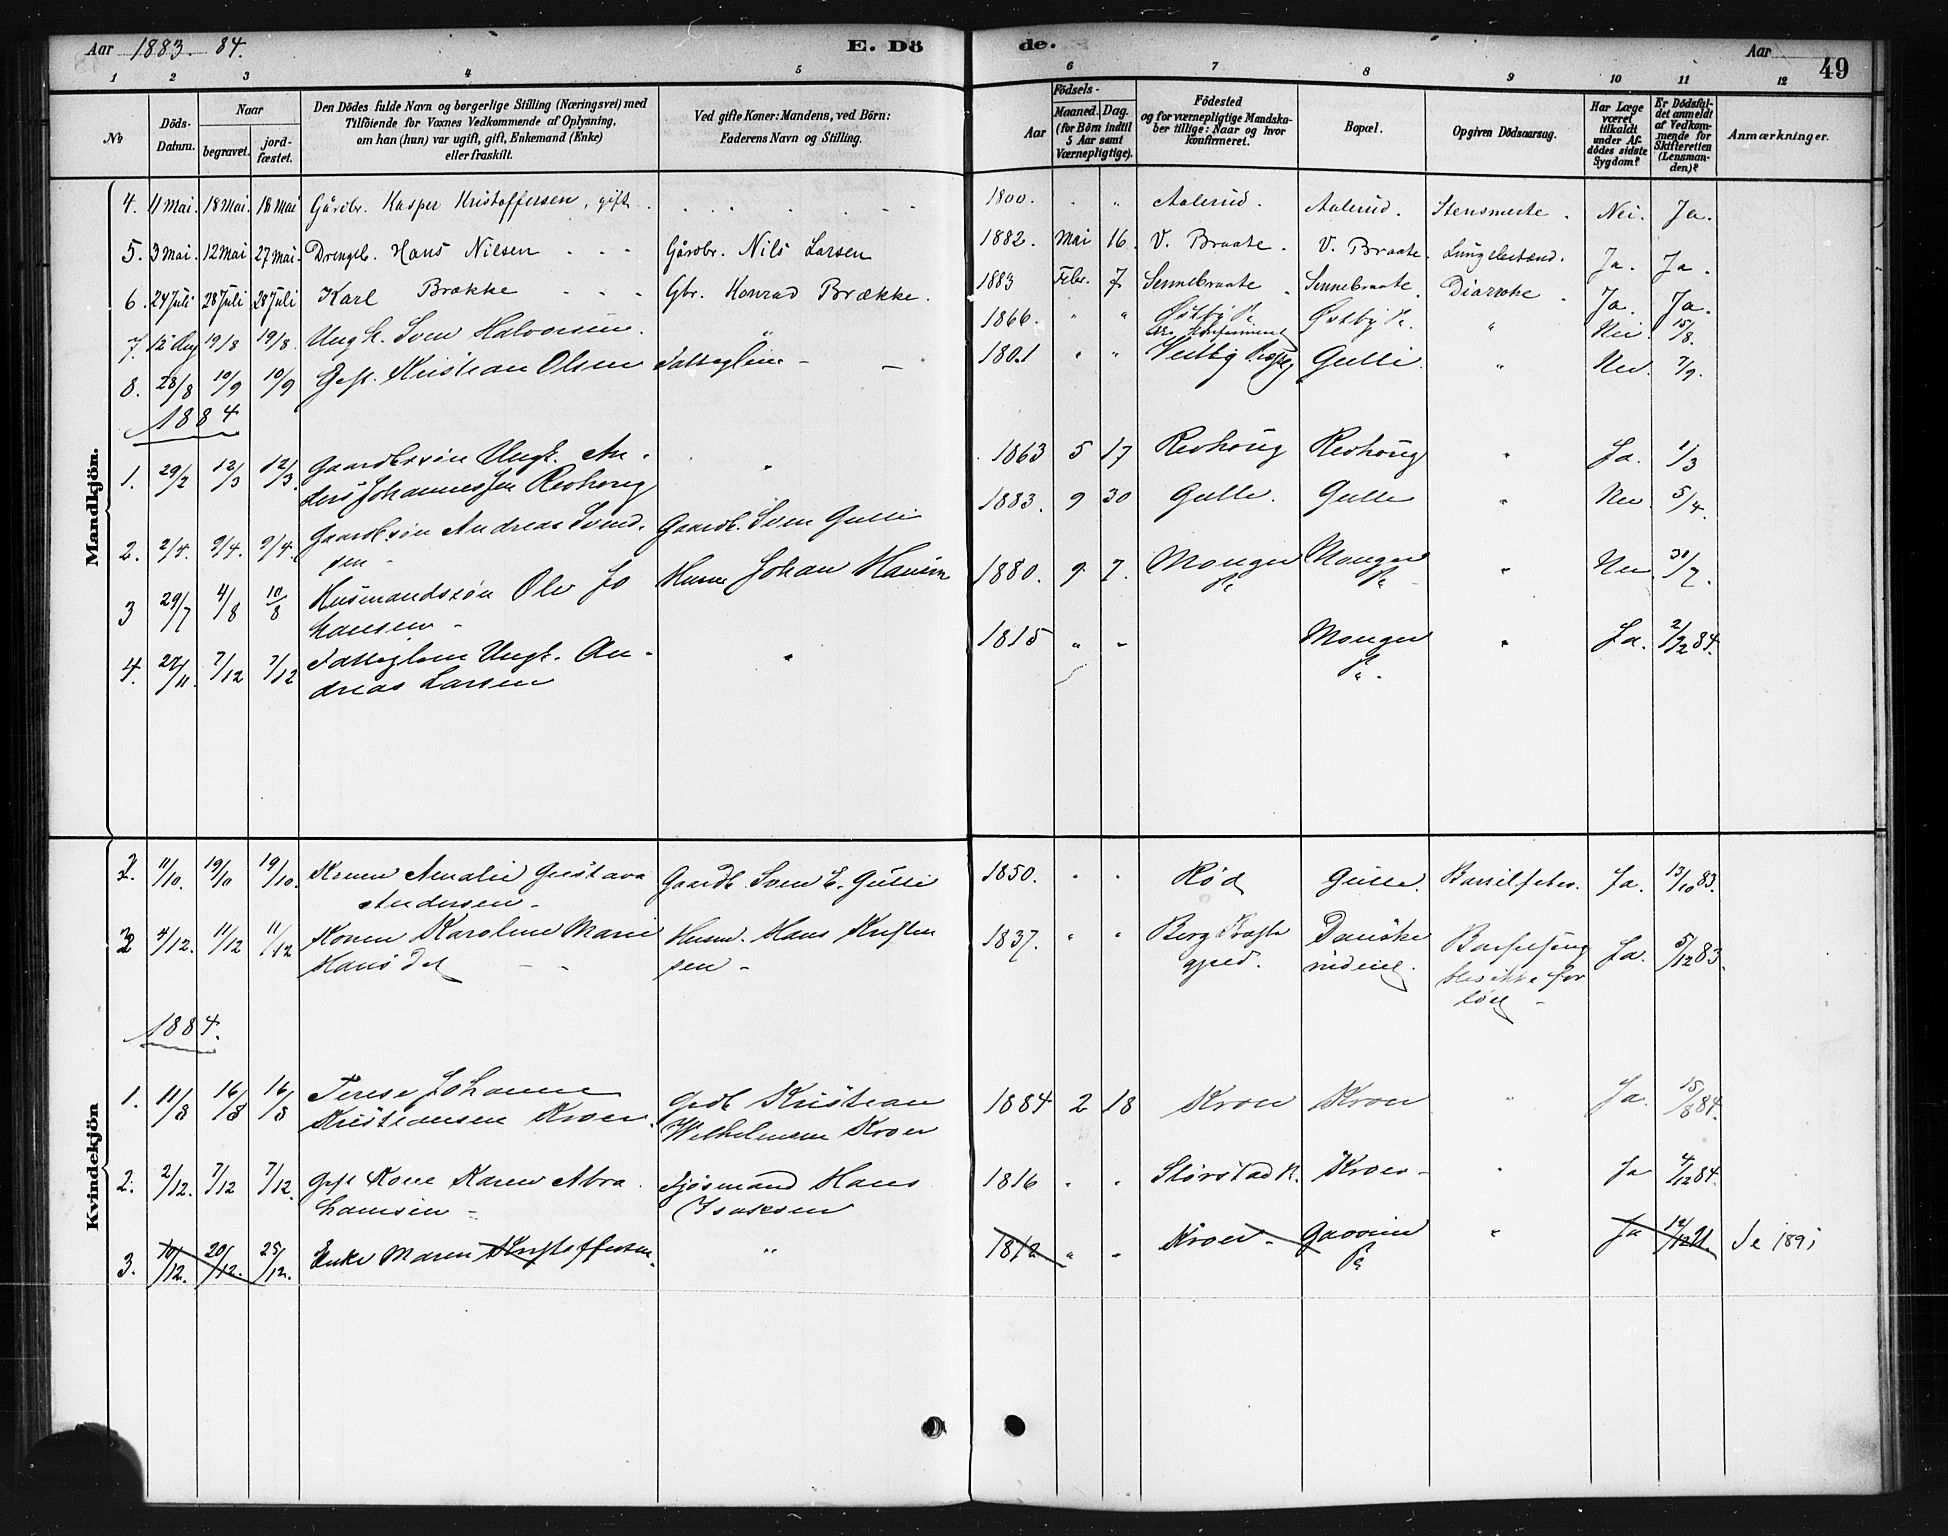 Aar 1883. 84. E. Dö de. Aar 49
1 2 3 4 5 6 7 8 9 10 11 12
№
Döds-Datum.
Naar
begravet.
jord-fæstet.
Den Dödes fulde Navn og borgerlige Stilling (Næringsvei) med
Tilföiende for Voxnes Vedkommende af Oplysning,
om han (hun) var ugift, gift, Enkemand (Enke)
eller fraskilt.
Ved gifte Koner: Mandens, ved Börn:
Faderens Navn og Stilling.
Födsels-
Aar
Maaned. Dag.
(for Börn indtil
5 Aar samt
Værnepligtige).
Födested
og for værnepligtige Mandska-
ber tillige: Naar og hvor
konfirmeret.
Bopæl.
Opgiven Dödsaarsag.
Har Læge
været
tilkaldt
under Af-
dödes sidste
Sygdom?
Er Dödsfal-
det anmeldt
af Vedkom-
mende for
Skifteretten
(Lensman-
den)?
Anmærkninger.
Mandkjön.
4. 11 Mai. 18 Mai. 18 Mai Gårdbr. Kasper Kristoffersen, gift. 1800. " Aalerud. Aalerud. Stensmerte. Nei. Ja.
5. 3 Mai. 12 Mai 27 Mai. Drengeb. Hans Nilsen Gårdbr. Nils Larsen 1882. Mai 16. V. Braate. V. Braate. Ja. Ja.
6. 24 Juli 28 Juli 28 Juli Karl Brække Gbr. Konrad Brække. 1883 Febr. 7 Sennebraate Sennebraate Diarrohe Ja. Ja.
7. 12 Aug 19/8 19/8. Ungk. Sven Halvorsen. " 1866. " " Østby Østby " Nei. 15/8.
8. 28/8 10/9 10/9 Gift. Kristian Olsen Fattiglem 1801 " " Vestby Gulli. " Nei. 7/9.
1884
1. 29/2 12/3 12/3. Gaardbrsön Ungk. An-
ders Johannessen Revhoug " 1863 5 17 Revhoug Revhoug " Ja. 1/3
2. 2/4. 9/4. 9/4. Gaardbrsön Andreas Svend-
sen Gaardb. Sven Gulli 1883. 9 30 Gulle. Gulle " Nei. 5/4.
3 29/7 4/8 10/8 Husmandssön Ole Jo
hansen Husm Johan Hansen 1880. 9 7. Monger Monger " Nei 30/7.
4. 27/11. 7/12 7/12 Fattiglem Ungk. An-
dreas Larsen " 1815 " " Monger " Ja. 2/12 84.
Kvindekjön
2. 11/10. 19/10 19/10. Konen Amalie Gustava
Andersen Gaardb. Sven E. Gulli 1850. " " Rød Gulle. Barselfeber. Ja. 13/10 83.
3 4/12. 11/12 11/12 Konen Karoline Marie
Hansdet Husm. Hans Kristen
sen 1837. " " Berg Præste
gjeld. Danske
Barselseng
blev ikke for
löst Ja. 5/12 83.
1884.
1. 11/8 16/8 16/8 Terese Johanne
Kristiansen Kroer. Grdb Kristian
Wilhelmsen Kroer 1884 2 18 Kroer Kroer " Ja. 15/8 84.
2. 2/12. 7/12 7/12. Gift Kone Karen Abra
hamsen Sjösmand Hans
Isaksen 1816 " " Störstad Kroer " Ja 4/12 84.
3. 10/12. 20/12. 25/12. Enke Maren Kristoffersen. " 1812 " " Kroer " Ja Se 1891